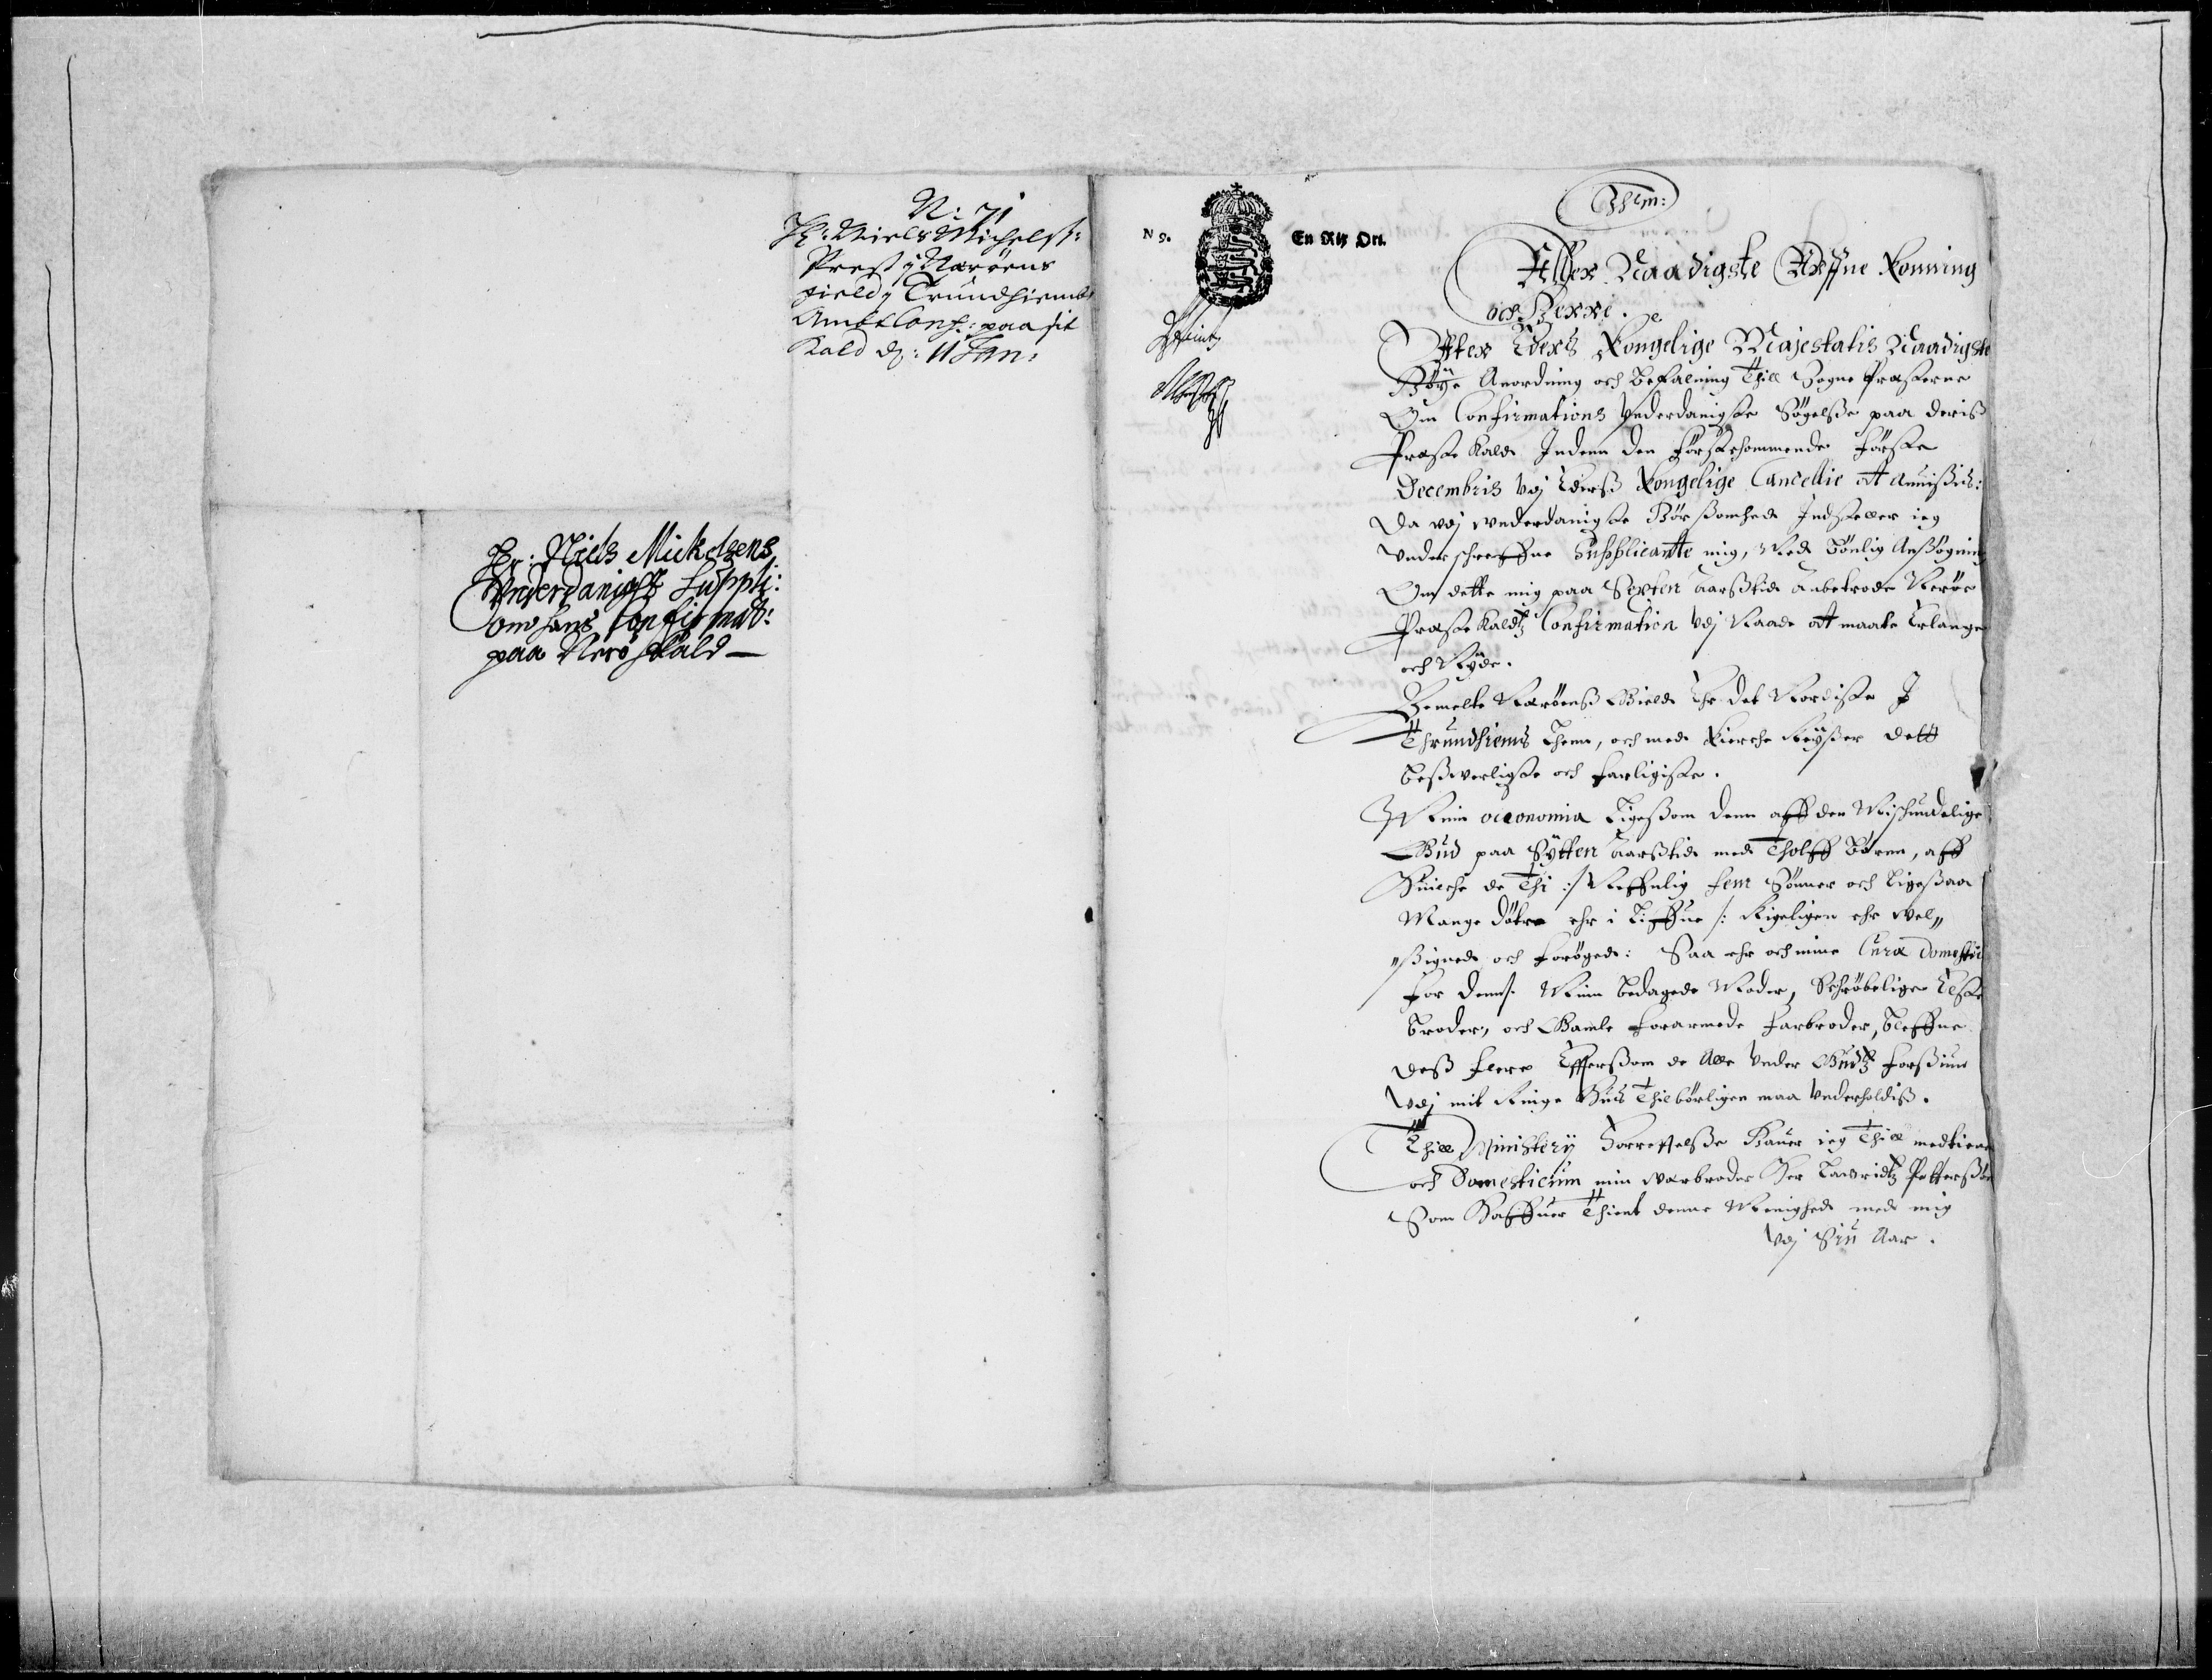 N: 71
Hr: Niels Michelss:
Prest i Nærøens
gield i Trundhiembs
Ambt Conf: paa sit
Kald d: 11 Jan:
Hr: Niels Mickelsens
Underdanigste Suppli:
om hans Confirmat:
paa Nerö Kald
N 9.
En Rix Ort.
Thrm:
Aller Naadigste Arffue Konning
och Herre.
Efter Eders Kongelige Majestatis Naadigste
Höye Anordning och befalning Thill Sogne Præsterne
Om Confirmations Underdanigste Søgelsse paa deris
Præste Kald Inden den förstkommende förste
Decembris Udj Ederss Kongelige Cancellie att
Da udj underdanigste Hörssomhed Indsteller ieg
underschreffne Supplicante mig, Med bönlig Ansøgning
Om dette mig paa Sexten Aarsstid anbetrode Nerøe
Præste Kaldtz Confirmation Udj Naade att maate Erlange
och Nyde.
Bemelte Nærøenss Gield Ehr det Nordiste I
Thrundhiems Lhenn, och med Kierche Reysser dett
besswerligste och farligiste.
Minn oeconomia Ligessom denn aff den Mischundelige
Gud paa Sytten Aarsstid med Tholff Börnn, aff
Huilche de Thi :/ Neffnlig fem Sönner och Ligessaa
Mange dötre ehr i Liffue /: Rigeligen ehr vel„
„ssignede och forøgede: Saa ehr och minn Cura domestica
for denn/. Minn bedagede Moder, Schrøbelige Elste
broder, och Gamle forarmede farbroder, bleffne
dess flere Effterssom de Alle Under Gudtz forssiun
Udj mit Ringe Huus Thilbörligen maa Underholdiss.
Thill Ministerij Forrettelsse Hauer ieg Thill medtienere
och Domesticum min Werbroder Her Lauridtz Pettersson
Som Haffuer Thient denne Menighed med mig
Udj Siu Aar.